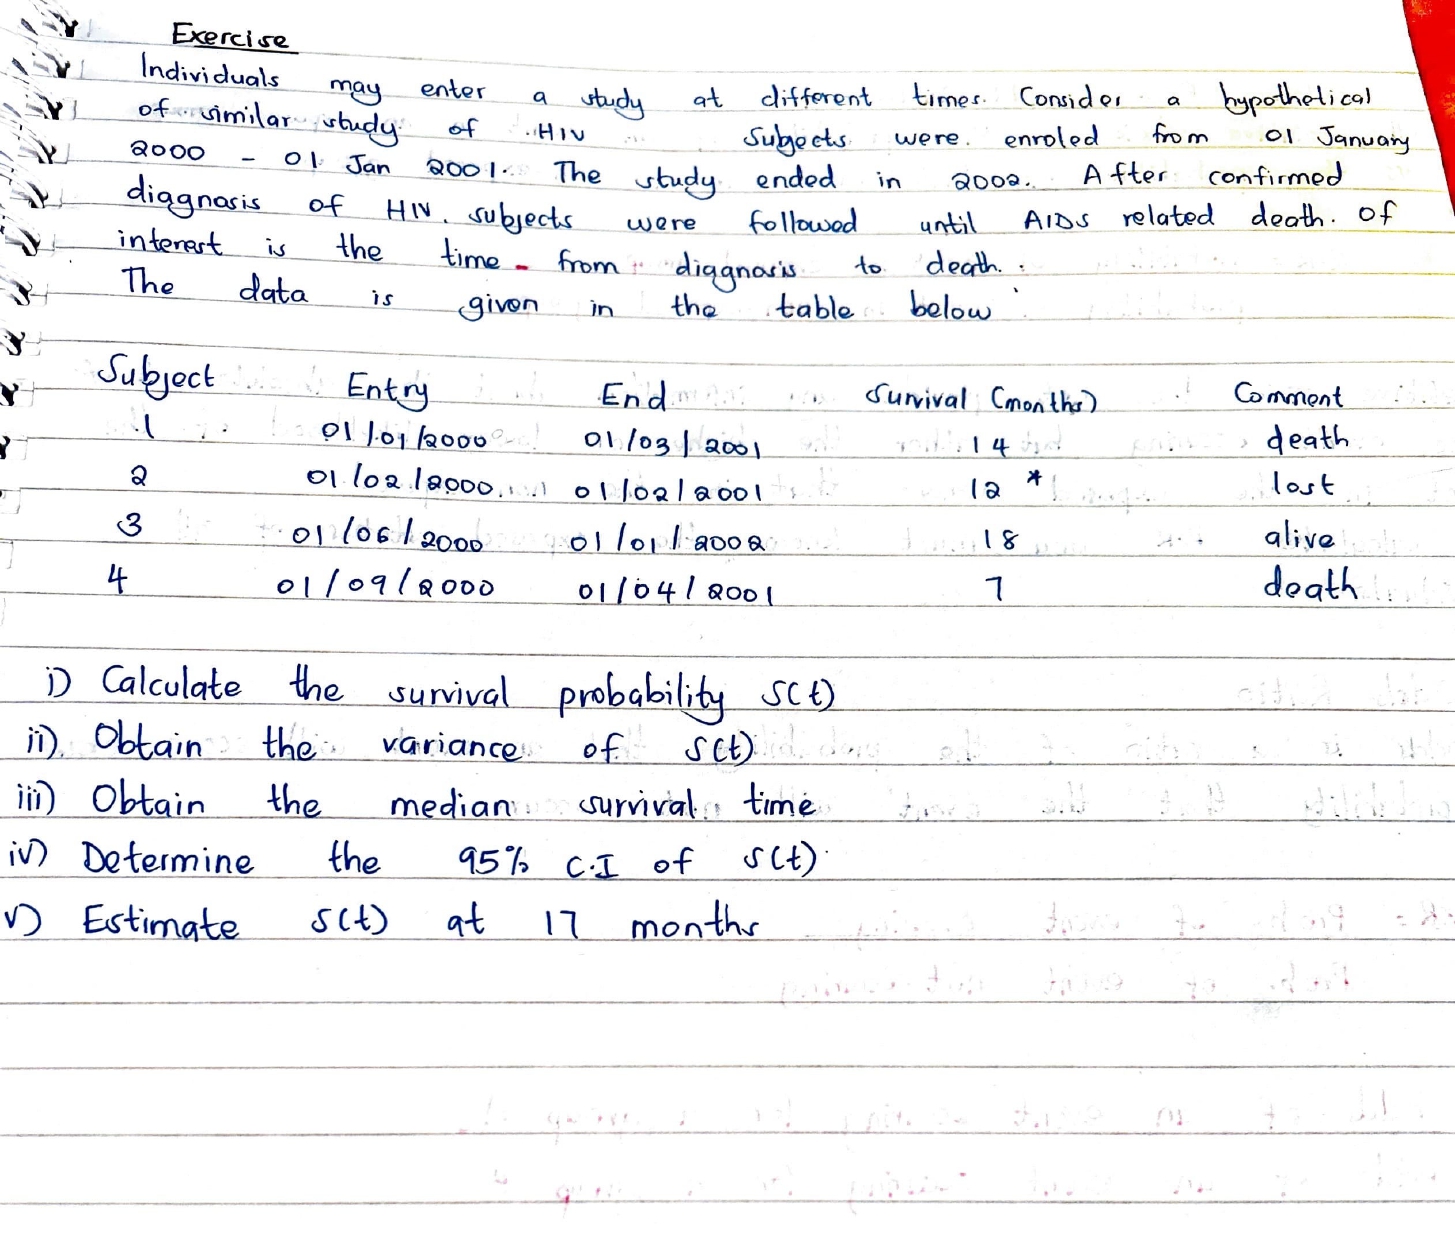 Exercise
Individuals may enter a study at different times. Consider a hypothetical
of similar study of HIV Subjects were enroled from 01 January
2000 - 01 Jan 2001. The study ended in 2002. After confirmed
diagnosis of HIV. subjects were followed until AIDS related death. Of
interest is the time - from diagnosis to death.
The data is given in the table below
Subject Entry End Survival (months) Comment
1 01/01/2000 01/03/2001 14 death
2 01/02/2000 01/02/2001 12 * lost
3 01/06/2000 01/01/2002 18 alive
4 01/09/2000 01/04/2001 7 death
i) Calculate the survival probability S(t)
ii) Obtain the variance of S(t)
iii) Obtain the median survival time
iv) Determine the 95% C.I of S(t)
v) Estimate S(t) at 17 months